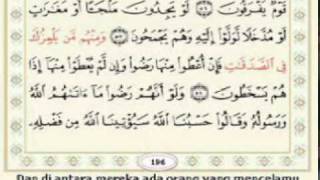 قَوْمٌ يَفْرَقُونَ ۝٥٦ لَوْ يَجِدُونَ مَلْجَـًٔا أَوْ مَغَـٰرَٰتٍ
أَوْ مُدَّخَلًا لَّوَلَّوْا۟ إِلَيْهِ وَهُمْ يَجْمَحُونَ ۝٥٧ وَمِنْهُم مَّن يَلْمِزُكَ
فِى ٱلصَّدَقَـٰتِ فَإِنْ أُعْطُوا۟ مِنْهَا رَضُوا۟ وَإِن لَّمْ يُعْطَوْا۟ مِنْهَآ إِذَا
هُمْ يَسْخَطُونَ ۝٥٨ وَلَوْ أَنَّهُمْ رَضُوا۟ مَآ ءَاتَىٰهُمُ ٱللَّهُ
وَرَسُولُهُۥ وَقَالُوا۟ حَسْبُنَا ٱللَّهُ سَيُؤْتِينَا ٱللَّهُ مِن فَضْلِهِۦ
196
Dan di antara mereka ada orang yang mencelamu